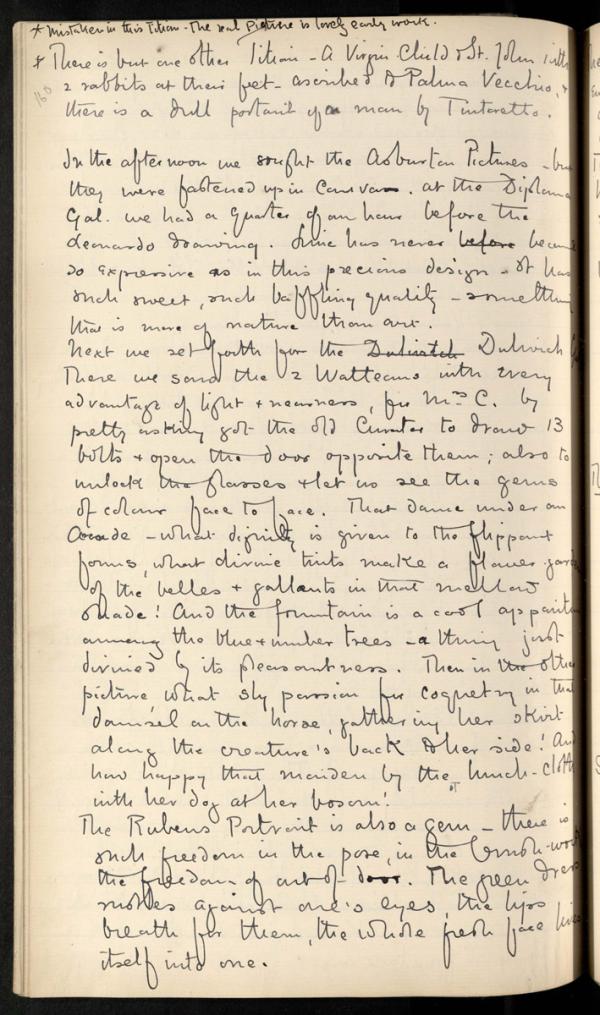 * Mistaken in this Titian - The real Picture is lovely early work.
* There is but one other Titian - A Virgin Child & St. John with
2 rabbits at their feet - ascribed to Palma Vecchio, &
there is a dull portrait of a man by Tintoretto.
160
In the afternoon we sought the Asburton Pictures - but
they were fastened up in Canvas. at the Diploma
Gal. we had a quarter of an hour before the
Leonardo drawing. Line has never before become
so expressive as in this precious design - It has
such sweet, such baffling quality - something
that is more of nature than art.
Next we set forth for the Dulwitch Dulwich
There we saw the 2 Watteaus with every
advantage of light & nearness, for Mrs C. by
pretty asking got the old Curator to draw 13
bolts & open the door opposite them; also to
unlock the glasses & let us see the gems
of colour face to face. That dance under an
Arcade - what dignity is given to the flippant
forms, what divine tints make a flower-gard
of the belles & gallants in that mellow
shade! And the fountain is a cool apparition
among the blue & umber trees - a thing just
divined by its pleasantness. Then in the other
picture what sly passion for coquetry in that
damsel on the horse, gathering her skirt
along the creature's back & her side! And
how happy that maiden by the lunch-cloth
with her dog at her bosom!
The Rubens Portrait is also a gem - there is
such freedom in the pose, in the brush-work
the freedom of out-of-door. The green dress
smites against one's eyes, the lips
breath for them, the whole fresh face lives
itself into one.